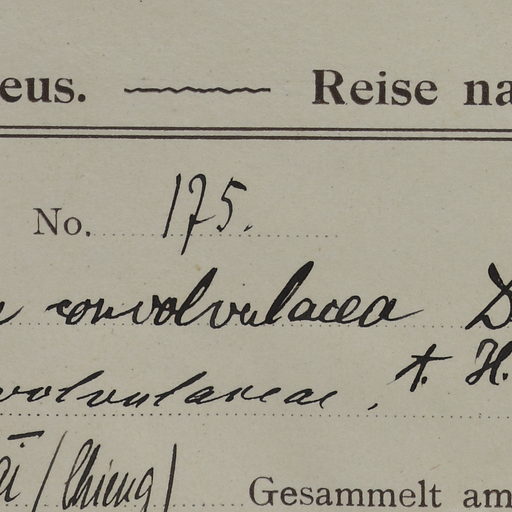 eus. Reise na
No. 175.
convolvulacea D
volvulaceae, t. H.
ai (Chieng)
Gesammelt am